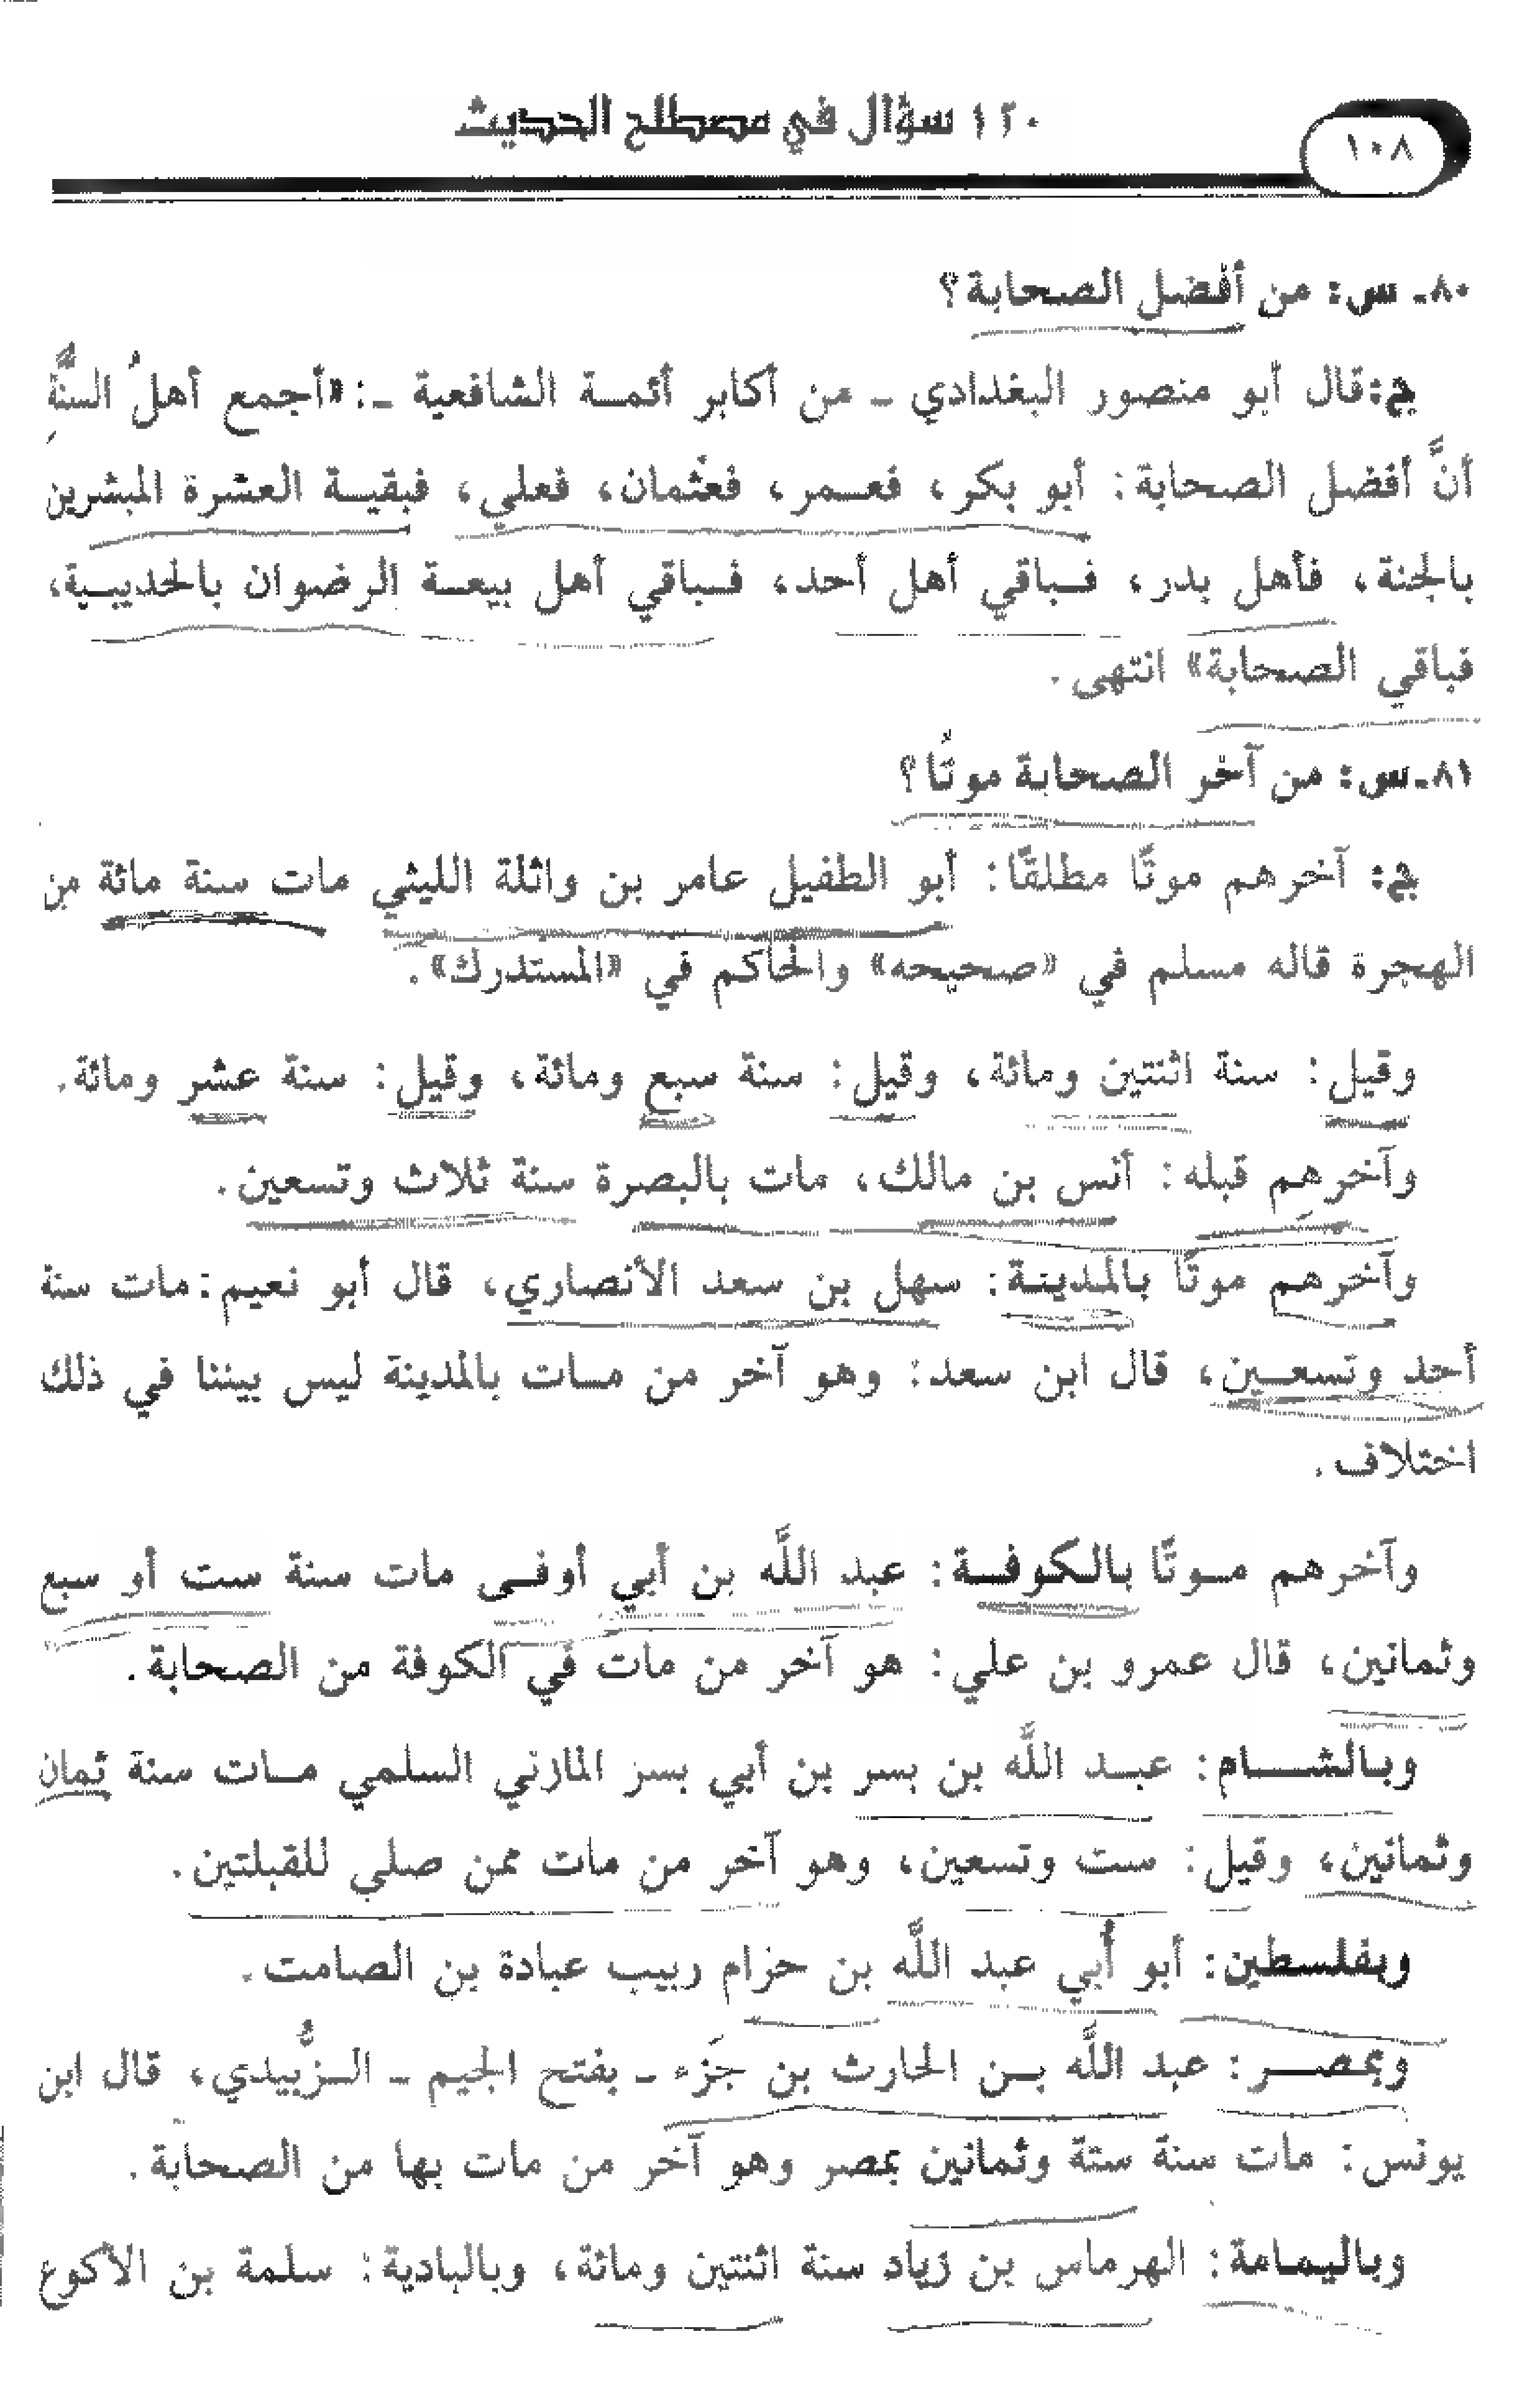 ١٢٠ سؤال في مصطلح الحديث
١٠٨
٨٠ـ س: من أفضل الصحابة؟
ج: قال أبو منصور البغدادي ـ من أكابر أئمة الشافعية ـ: «أجمع أهلُ السنَّةِ
أنَّ أفضل الصحابة: أبو بكر، فعمر، فعثمان، فعلي، فبقية العشرة المبشرين
بالجنة، فأهل بدر، فباقي أهل أحد، فباقي أهل بيعة الرضوان بالحديبية،
فباقي الصحابة» انتهى.
٨١ـ س: من آخر الصحابة موتًا؟
ج: آخرهم موتًا مطلقًا: أبو الطفيل عامر بن واثلة الليثي مات سنة مائة من
الهجرة قاله مسلم في «صحيحه» والحاكم في «المستدرك».
وقيل: سنة اثنتين ومائة، وقيل: سنة سبع ومائة، وقيل: سنة عشر ومائة.
وآخرهم قبله: أنس بن مالك، مات بالبصرة سنة ثلاث وتسعين.
وآخرهم موتًا بالمدينة: سهل بن سعد الأنصاري، قال أبو نعيم: مات سنة
أحد وتسعين، قال ابن سعد: وهو آخر من مات بالمدينة ليس بيننا في ذلك
اختلاف.
وآخرهم موتًا بالكوفة: عبد اللَّه بن أبي أوفى مات سنة ست أو سبع
وثمانين، قال عمرو بن علي: هو آخر من مات في الكوفة من الصحابة.
وبالشام: عبد اللَّه بن بسر بن أبي بسر المازني السلمي مات سنة ثمان
وثمانين، وقيل: ست وتسعين، وهو آخر من مات ممن صلى للقبلتين.
وبفلسطين: أبو أُبي عبد اللَّه بن حزام ربيب عبادة بن الصامت.
وبمصر: عبد اللَّه بن الحارث بن جَزء ـ بفتح الجيم ـ الزُّبيدي، قال ابن
يونس: مات سنة ستة وثمانين بمصر وهو آخر من مات بها من الصحابة.
وباليمامة: الهرماس بن زياد سنة اثنتين ومائة، وبالبادية: سلمة بن الأكوع